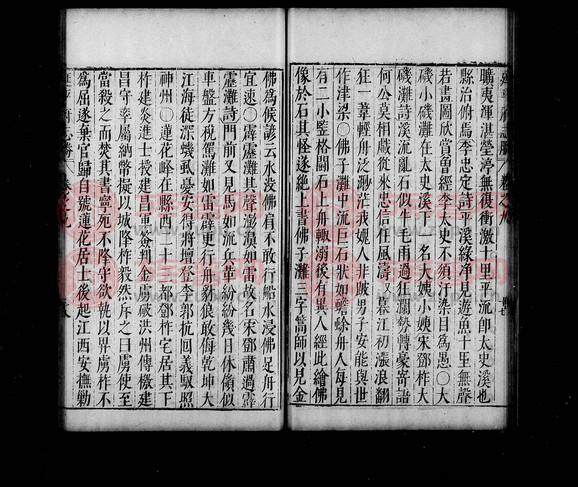 職夷渾湛瑩渟無復衝激十里平流即太史溪也
縣治俯焉李忠定詩平溪綠淨見遊魚十里無聲
若畫圖欣賞曽經李太史不須汗染目為愚○大
磯小磯灘在太史溪下一名大姨小姨宋鄧柞大
磯灘詩溪流亂石似牛毛甫過狂瀾勢轉豪寄語
何公莫相戲從來忠信任風濤又暮江初漲浪翻
狂一葦輕舟泛渺茫我媿人非跛男子安能與世
作津梁○佛子灘中流巨石狀如蟾蜍舟人每見
有二小豎格鬬石上舟輙溺後有異人經此繪佛
像於石其怪遂絶上書佛子灘三字篙師以見金
佛為候諺云水浸佛肩不敢行船水浸佛足舟行
宜速○霹靂灘其聲澎湃如雷宋鄧肅過霹
靂灘詩門前又見馬如流兵革紛紛幾日休傾似
車盤方稅駕灘如雷霹更行舟豺狼敢侮乾坤大
江海徒深蟣虱憂安得將壇登李郭抗回義馭照
神州○蓮花峰在縣西二十都鄧柞宅居其下
柞建炎進士授建昌軍簽判金虜破洪州傳檄建
昌守率屬納幣擬以城降柞毅然斥之曰虜使至
當殺之而焚其書寧死不降守欲執以畀虜柞不
為屈遂棄官歸自號蓮花居士後起江西安撫勦